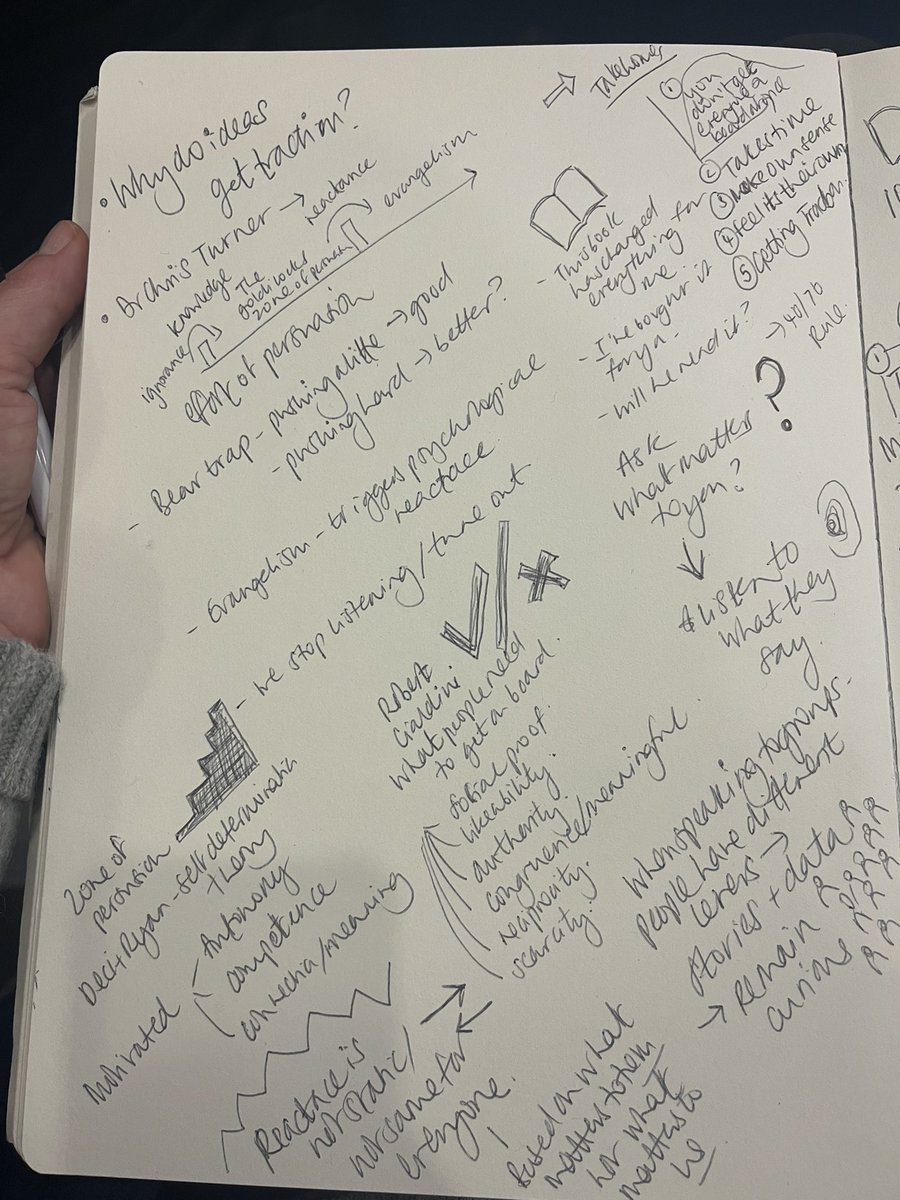 • Why do ideas
get traction?
• Dr Chris Turner → reactance
ignorance
knowledge
The
Goldilocks
zone of persuasion
evangelism
effort of persuation
- Bear trap - pushing a little → good
- pushing hard → better?
- Evangelism - triggers psychological
reactace
- we stop listening / tune out
Zone of
persusion
Deci + Ryan - self determination
theory
Motivated
- Autonomy
competence
connection/meaning
Reactace is
not static/
not same for
everyone.
Robert
Cialdini
what people need
to get on board.
social proof.
likeability.
authority.
congruence/meaningful.
reciprocity.
scarcity.
⇒ Takehomes
① you
don't get
everyone
board
② Takes time
③ make own sense
④ feel its their own
⑤ getting Traction.
- This book
has changed
everything for
me
- I've bought it
for you -
- will he read it?
→ 40/70
Rule.
?
Ask
what matter
to you?
↓
listen to
what they
say.
When speaking to groups-
people have different
levers →
stories + data
→ Remain
curious
based on what
matters to them
not what
matters to
us